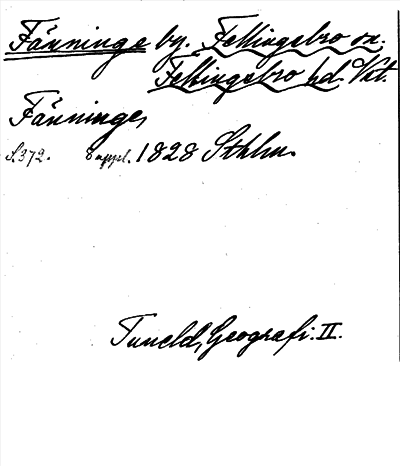 Fänninge by. Fellingsbro sn.
Fellingsbro hd. Vstm.
Fänninge,
S. 372. 8 uppl. 1828 Sthlm.
Tuneld, Geografi. II.